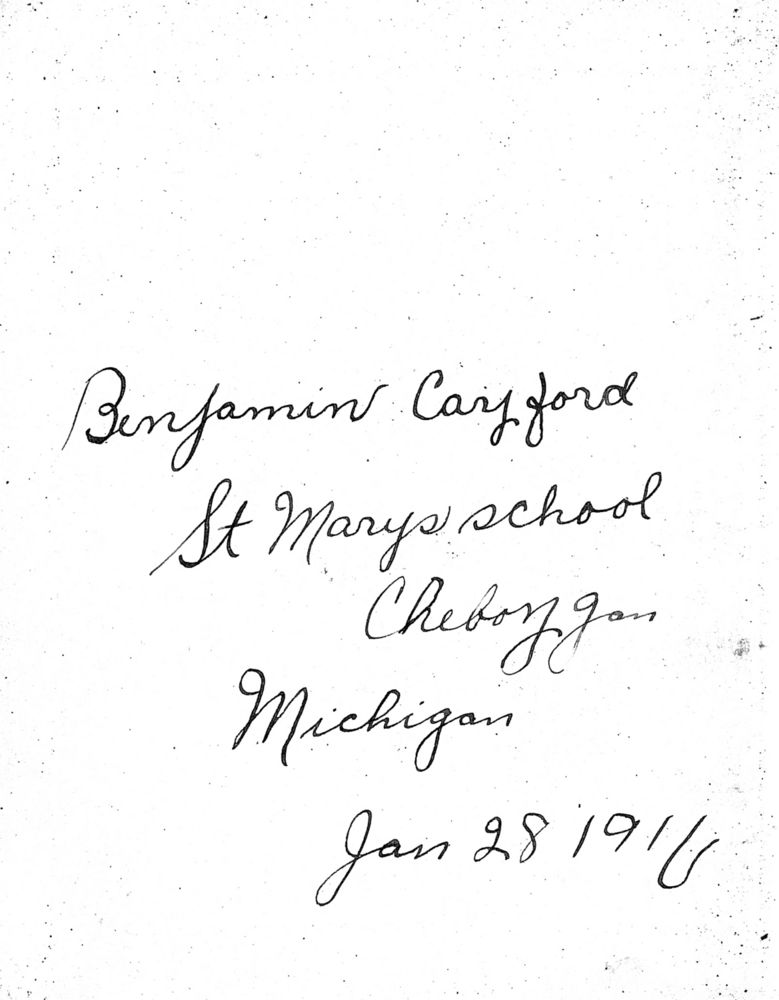 Benjamin Cayford
St Marys school
Cheboygan
Michigan
Jan 28 1916